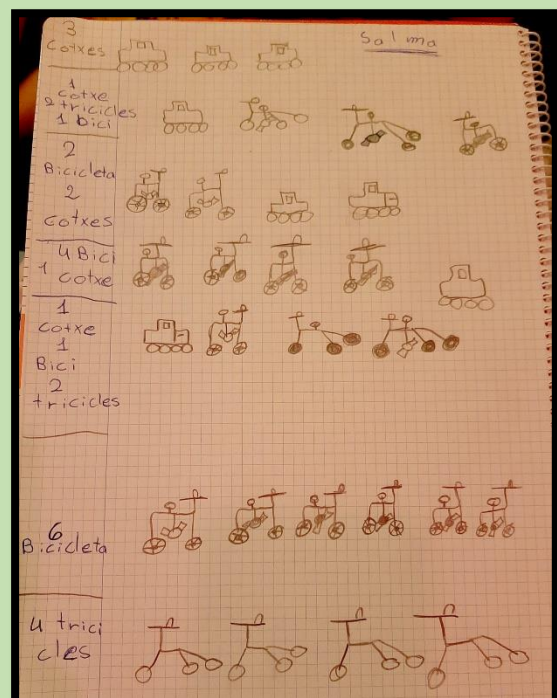 Salma
3
cotxes
1
cotxe
2 tricicles
1 bici
2
Bicicleta
2
cotxes
4 Bici
1 cotxe
1
cotxe
1
Bici
2
tricicles
6
Bicicleta
4 trici
cles